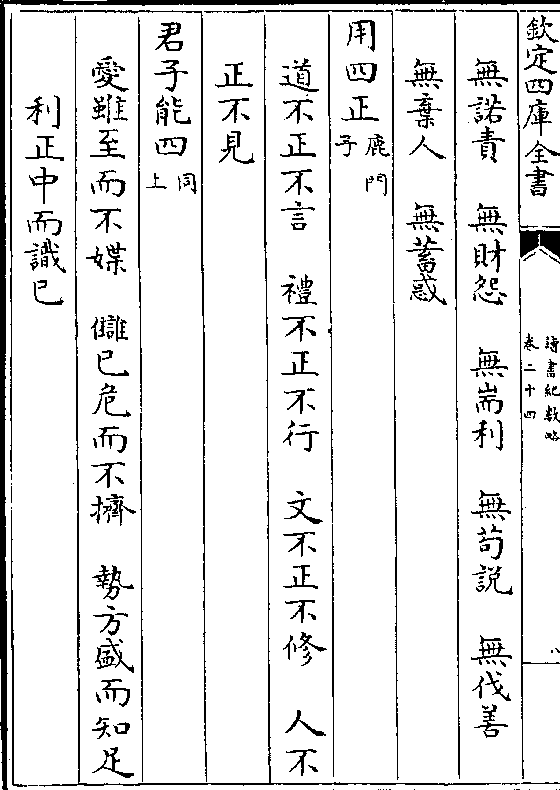 欽定四庫全書
讀書紀數略
卷二十四
八
無諾責　無財怨　無耑利　無茍説　無伐善
無棄人　無蓄惑
用四正鹿門子
道不正不言　禮不正不行　文不正不修　人不
正不見
君子能四同上
愛雖至而不媟　讎已危而不擠　勢方盛而知足
利正中而識已